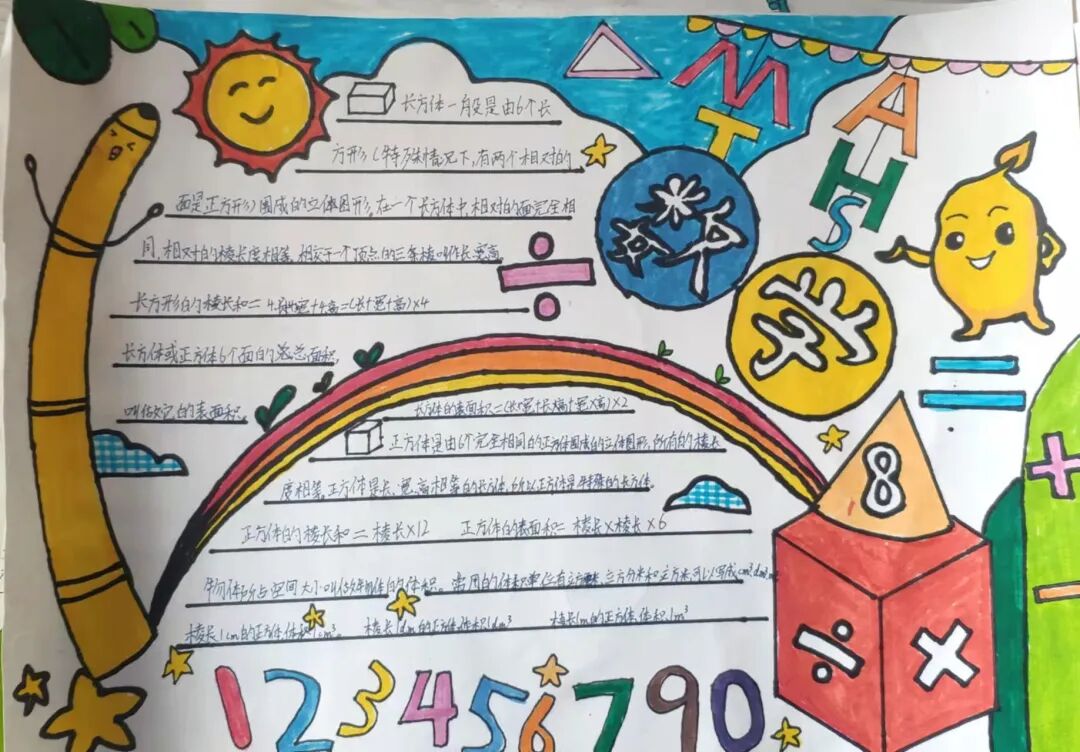 长方体一般是由6个长
方形(特殊情况下,有两个相对的
面是正方形)围成的立体图形,在一个长方体中,相对的面完全相
同,相对的棱长度相等,相交于一个顶点的三条棱叫作长、宽、高
长方形的棱长和=4长+4宽+4高=(长+宽+高)×4
长方体或正方体6个面的总面积,
叫做它的表面积。
长方体的表面积=(长×宽+长×高+宽×高)×2
正方体是由6个完全相同的正方体围成的立体图形,所有的棱长
度相等,正方体是长、宽、高相等的长方体,所以正方体是特殊的长方体.
正方体的棱长和=棱长×12 正方体的表面积=棱长×棱长×6
物体所占空间大小叫做物体的体积。常用的体积单位有立方厘米,立方分米和立方米,可以写成cm³
棱长1cm的正方体,体积1cm³。 棱长1dm的正方体,体积1dm³ 棱长1m的正方体,体积1m³
MATHS
数学
÷
=
+
−
8
÷ ×
123456790